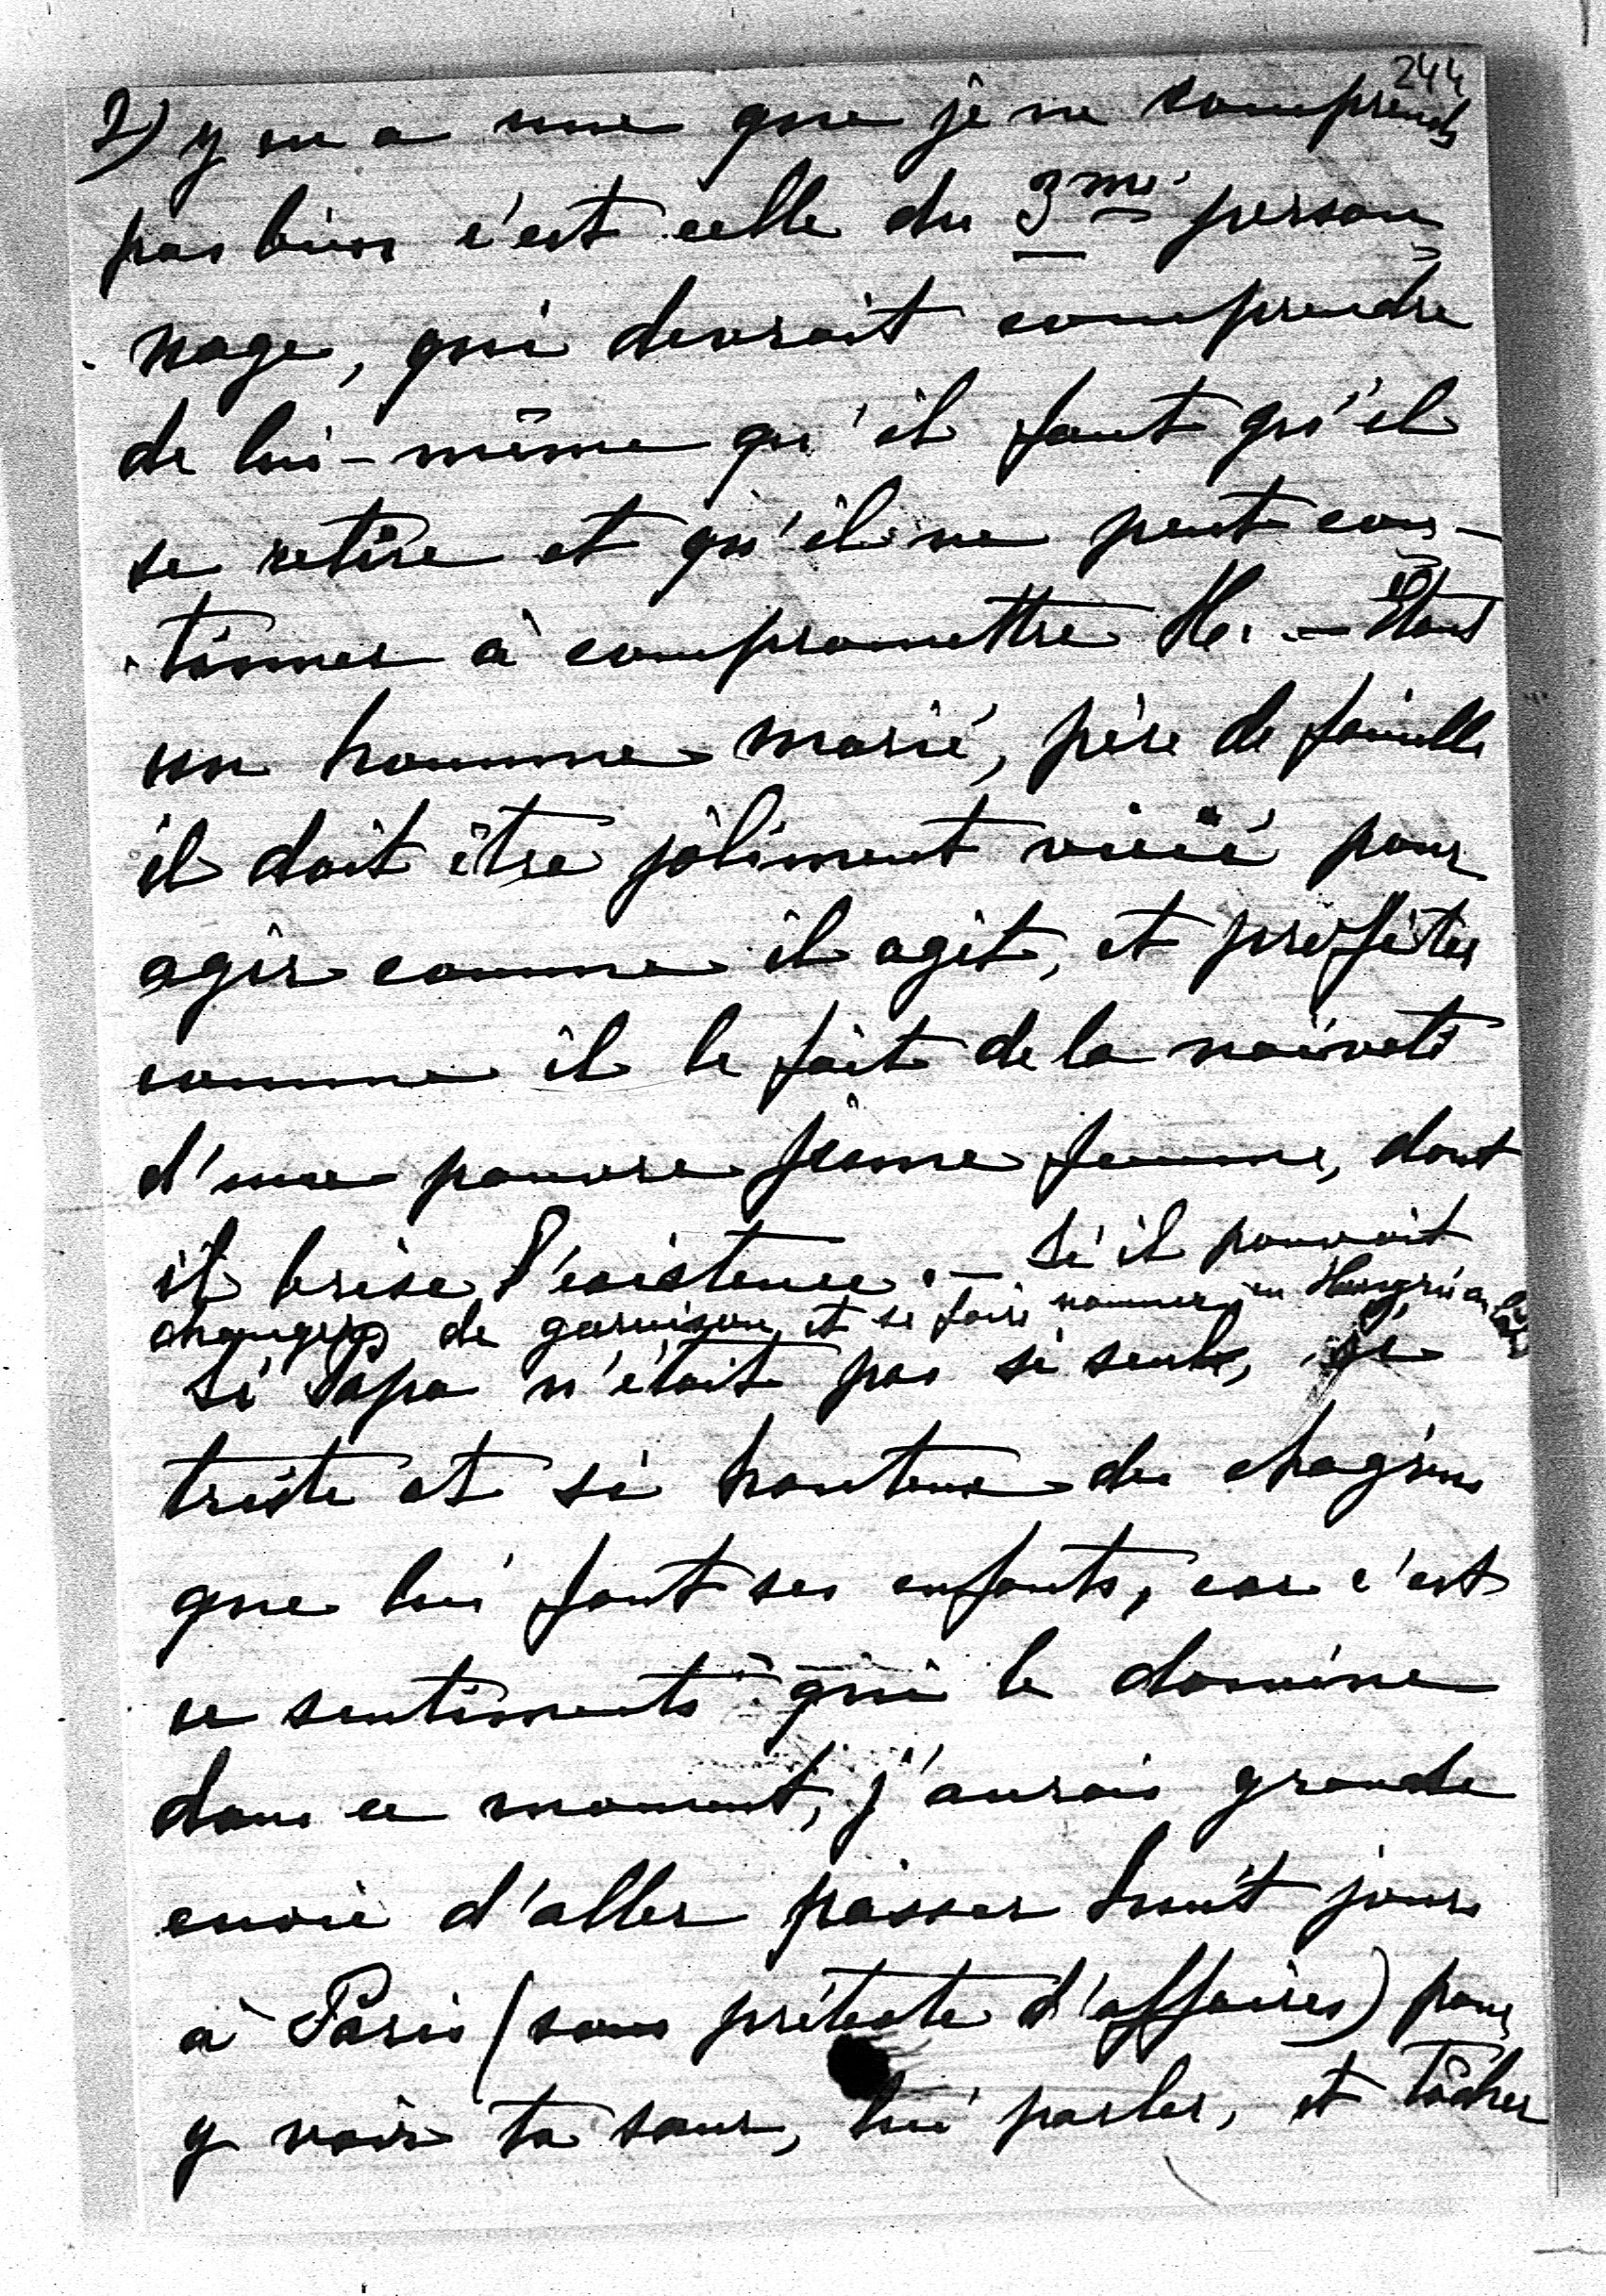 244
2) y en a une que je ne comprends
pas bien c'est celle du 3me person
nage, qui devrait comprendre
de lui-même qu'il faut qu'il
se retire et qu'il ne peut con-
tinuer à compromettre H. — Etant
un homme marié, père de famille
il doit être joliment vicié pour
agir comme il agit, et profiter
comme il le fait de la naïveté
d'une pauvre jeune femme, dont
il brise l'existence. — Si il pouvait
changer de garnison, et se faire nommer en Hongrie
Si Papa n'était pas si seul, si
triste et si honteux des chagrins
que lui font ses enfants, car c'est
ce sentiments qui le domine
dans ce moment, j'aurais grande
envie d'aller passer huit jours
à Paris (sous prétexte d'affaires) pour
y voir ta sœur, lui parler, et tâcher